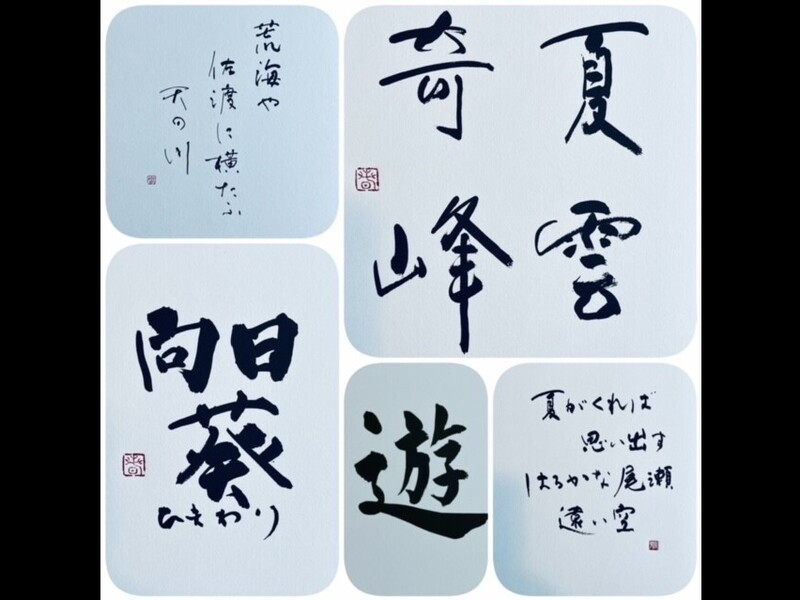 荒海や
佐渡に横たふ
天の川
夏雲
奇峰
向日
葵
ひまわり
遊
夏がくれば
思い出す
はるかな尾瀬
遠い空